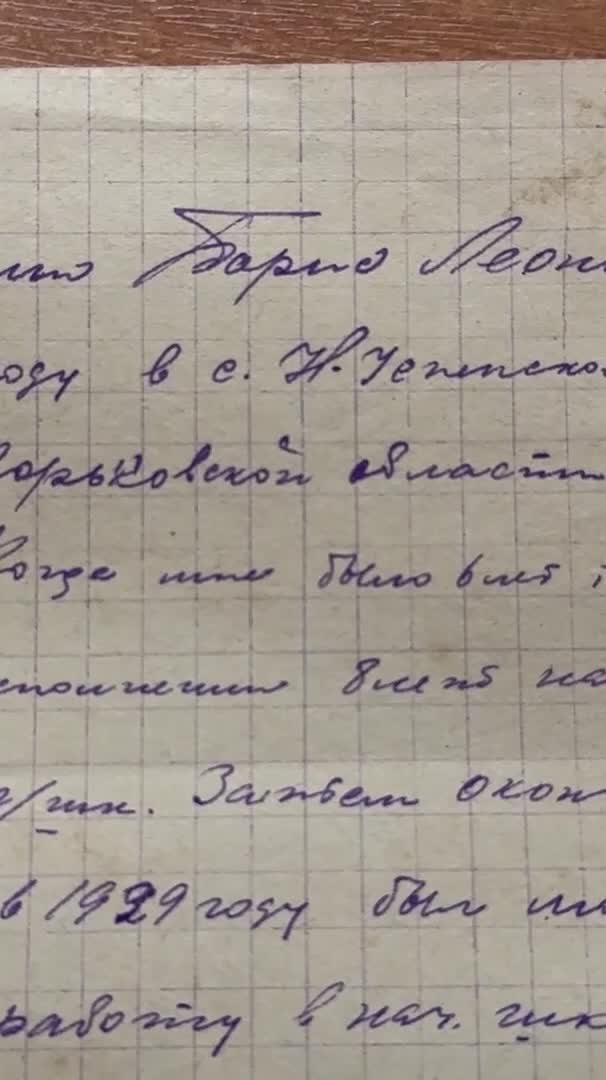 Барло Леон
году в с. Н. Успенско
Горьковской области
Когда мне было 6 лет
исполнении 8 лет на
шк. Затем окон
в 1929 году был
работу в нач. шк